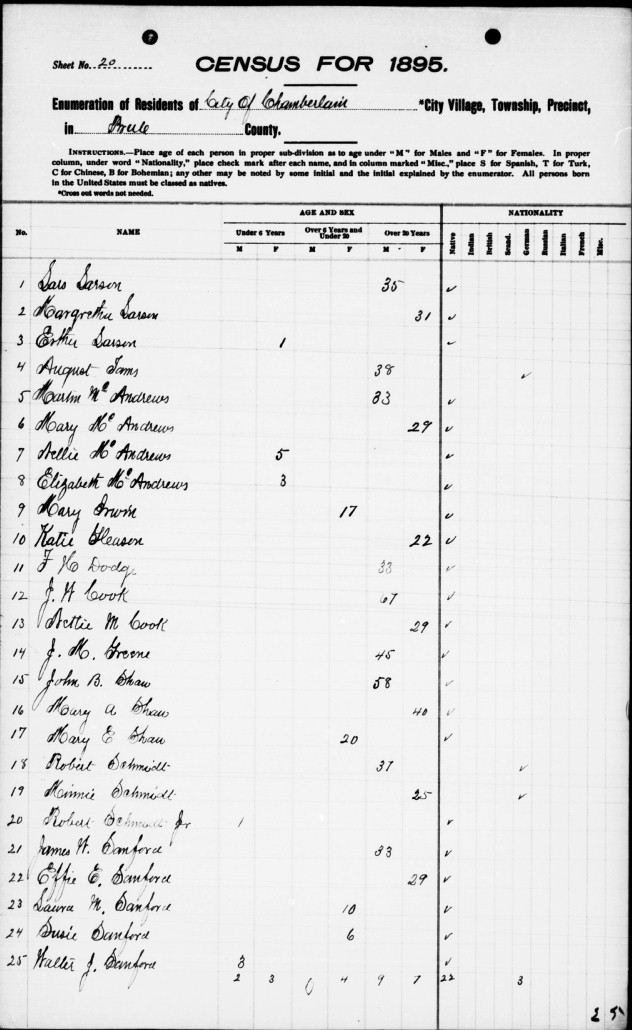 Sheet No. 20
CENSUS FOR 1895.
Enumeration of Residents of City Of Chamberlain *City Village, Township, Precinct,
in Brule County.
INSTRUCTIONS.—Place age of each person in proper sub-division as to age under "M" for Males and "F" for Females. In proper
column, under word "Nationality," place check mark after each name, and in column marked "Misc.," place S for Spanish, T for Turk,
C for Chinese, B for Bohemian; any other may be noted by some initial and the initial explained by the enumerator. All persons born
in the United States must be classed as natives.
*Cross out words not needed.
AGE AND SEX NATIONALITY
No. NAME Under 6 Years Over 6 Years and Under 20 Over 20 Years Native Indian British Scand. German Russian Italian French Misc.
M F M F M F
1 Lars Larson 35 ✓
2 Margrethe Larson 31 ✓
3 Esther Larson 1 ✓
4 August Tams 38 ✓
5 Martin Mc Andrews 33 ✓
6 Mary Mc Andrews 29 ✓
7 Nellie Mc Andrews 5 ✓
8 Elizabeth Mc Andrews 3 ✓
9 Mary Irwin 17 ✓
10 Katie Gleason 22 ✓
11 F H Dodge 33 ✓
12 J. W Cook 67 ✓
13 Nettie M Cook 29 ✓
14 J. M. Greene 45 ✓
15 John B. Shaw 58 ✓
16 Mary A Shaw 40 ✓
17 Mary E Shaw 20 ✓
18 Robert Schmidt 37 ✓
19 Minnie Schmidt 25 ✓
20 Robert Schmidt Jr 1 ✓
21 James W. Sanford 33 ✓
22 Effie E. Sanford 29 ✓
23 Laura M. Sanford 10 ✓
24 Susie Sanford 6 ✓
25 Walter J. Sanford 3 ✓
2 3 0 4 9 7 22 3
25